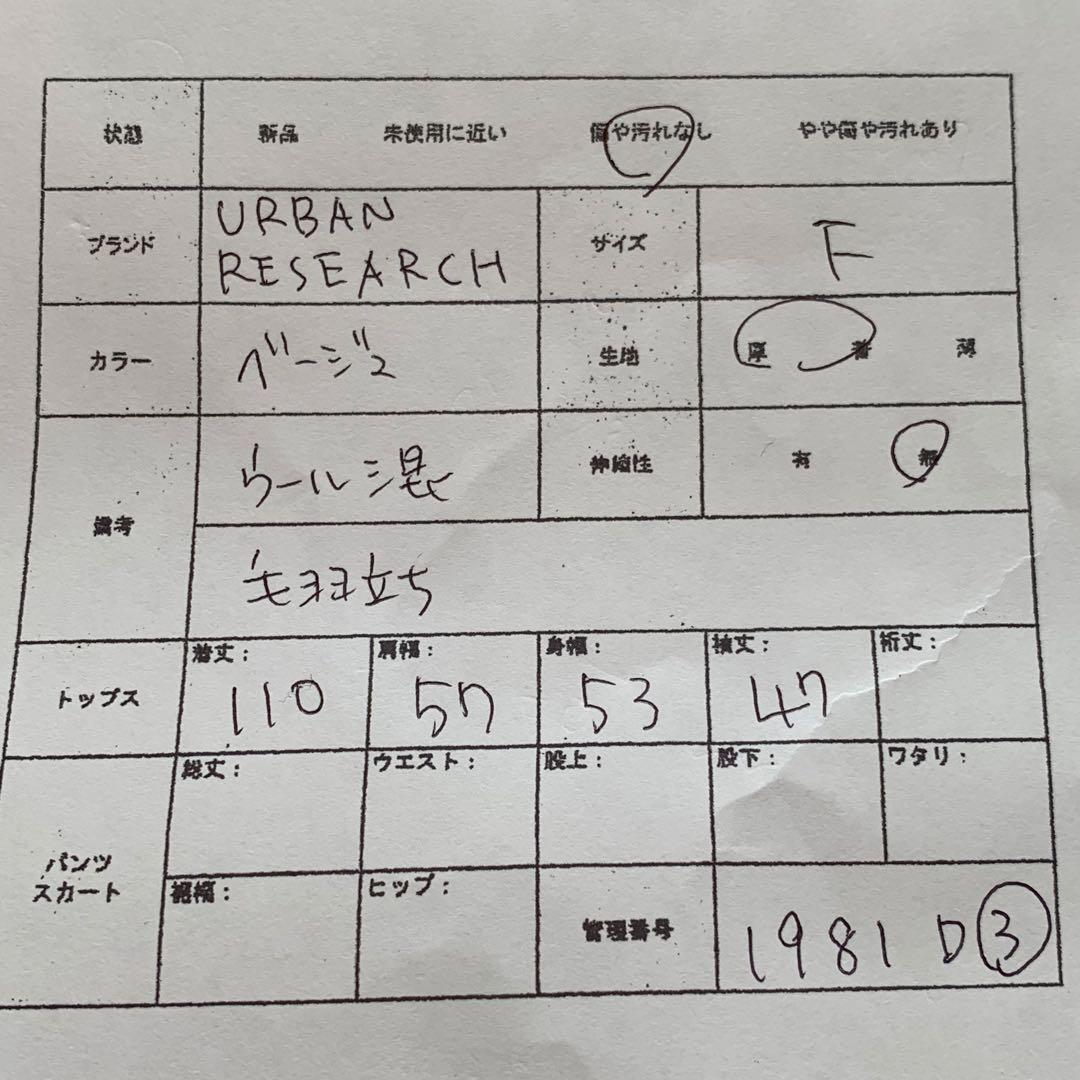 状態 新品 未使用に近い 傷や汚れなし やや傷や汚れあり
ブランド URBAN RESEARCH サイズ F
カラー ベージュ 生地 厚 普 薄
備考 ウール混 伸縮性 有 無
毛羽立ち
トップス 着丈: 110 肩幅: 57 身幅: 53 袖丈: 47 裄丈:
パンツ スカート 総丈: ウエスト: 股上: 股下: ワタリ:
裾幅: ヒップ: 管理番号 1981 D③